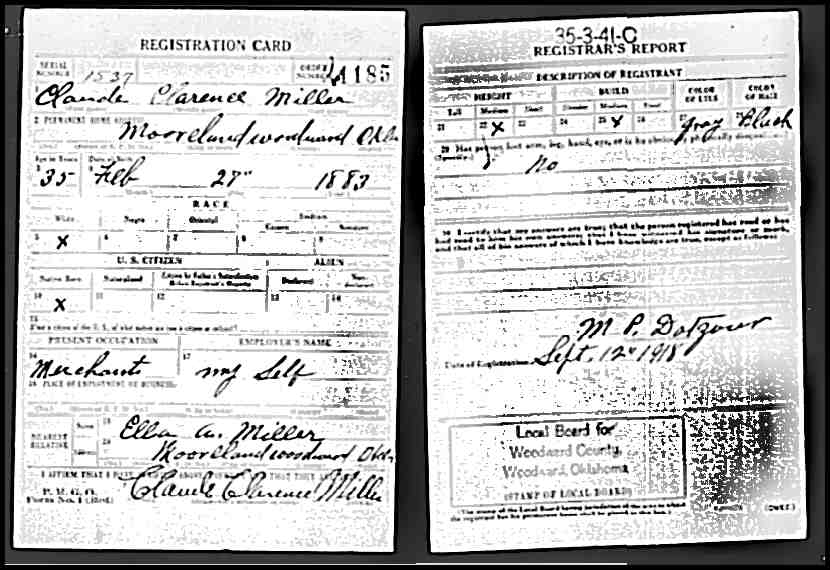 REGISTRATION CARD
SERIAL NUMBER 1537
ORDER NUMBER A1185
Claude Clarence Miller
2 PERMANENT HOME ADDRESS
Mooreland woodward Okla
Age in Years Date of Birth
35 Feb 27" 1883
RACE
White Negro Oriental Indian
Citizen
5 x 6 7 8 9
U. S. CITIZEN ALIEN
Native Born Naturalized Declarant Non-declarant
10 x 11 12 13 14
15
PRESENT OCCUPATION EMPLOYER'S NAME
16 Merchant 17 my Self
18 PLACE OF EMPLOYMENT OR BUSINESS
NEAREST RELATIVE
Name 19 Ella A. Miller
Address 20 Mooreland woodward Okla
I AFFIRM THAT I HAVE
P. M. G. O.
Form No. 1 (Red)
Claude Clarence Miller
35-3-41-C
REGISTRAR'S REPORT
DESCRIPTION OF REGISTRANT
HEIGHT BUILD COLOR OF EYES COLOR OF HAIR
Tall Medium Short Slender Medium Stout
21 22 x 23 24 25 x 26 27 Gray 28 Black
29 Has person lost arm, leg, hand, eye, or is he obviously physically disqualified?
(Specify.)
No
30 I certify that my answers are true; that the person registered has read or has
had read to him his own answers; that I have witnessed his signature or mark,
and that all of his answers of which I have knowledge are true, except as follows:
M P. Dotzour
Date of Registration Sept. 12" 1918
Local Board for
Woodward County,
Woodward, Oklahoma
(STAMP OF LOCAL BOARD)
(The stamp of the Local Board having jurisdiction of the area in which
the registrant has his permanent home shall be placed in this box.)
(OVER)